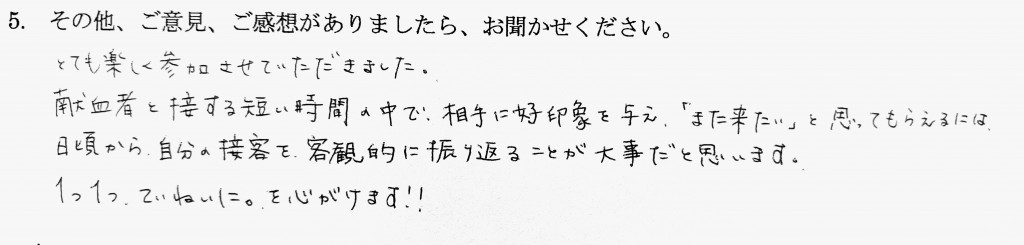 5. その他、ご意見、ご感想がありましたら、お聞かせください。
とても楽しく参加させていただきました。
献血者と接する短い時間の中で、相手に好印象を与え、「また来たい」と思ってもらえるには、
日頃から、自分の接客を、客観的に振り返ることが大事だと思います。
1つ1つ、ていねいに。を心がけます!!